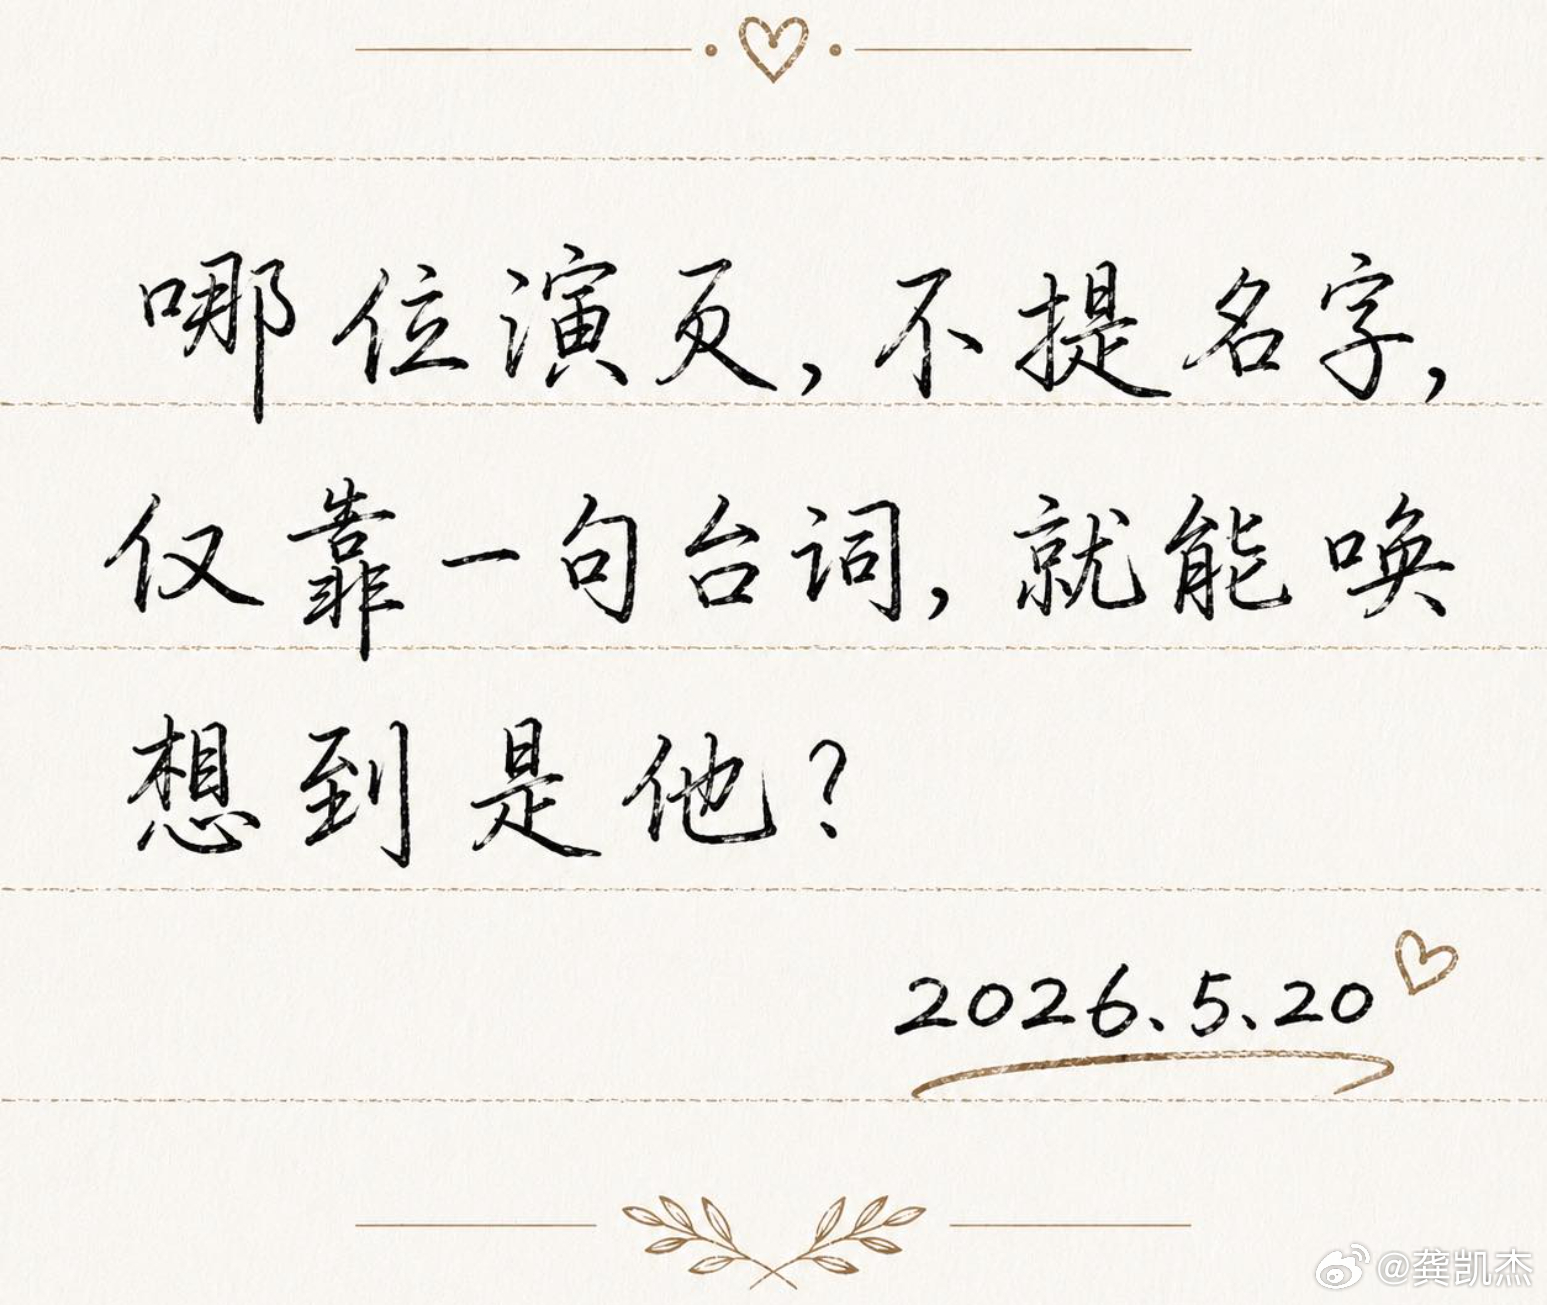 哪位演页，不提名字，
仅靠一句台词，就能唤
想到是他？
2026.5.20
@龚凯杰